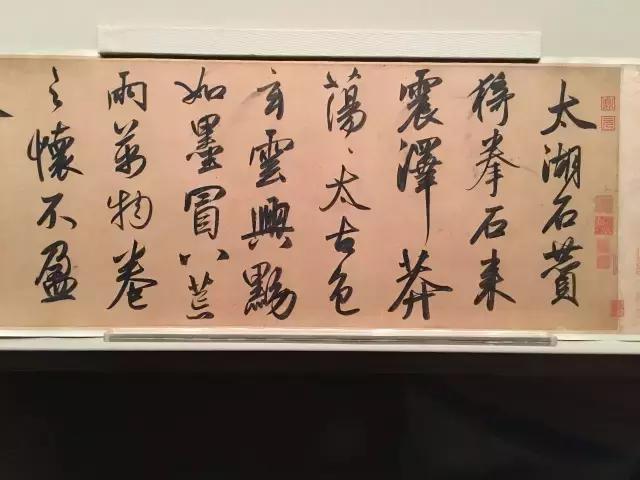 太湖石贊
猗拳石来
震澤莽
蕩〻太古色
玄雲興黝
如墨冒八荒
雨萬物卷
之懷不盈